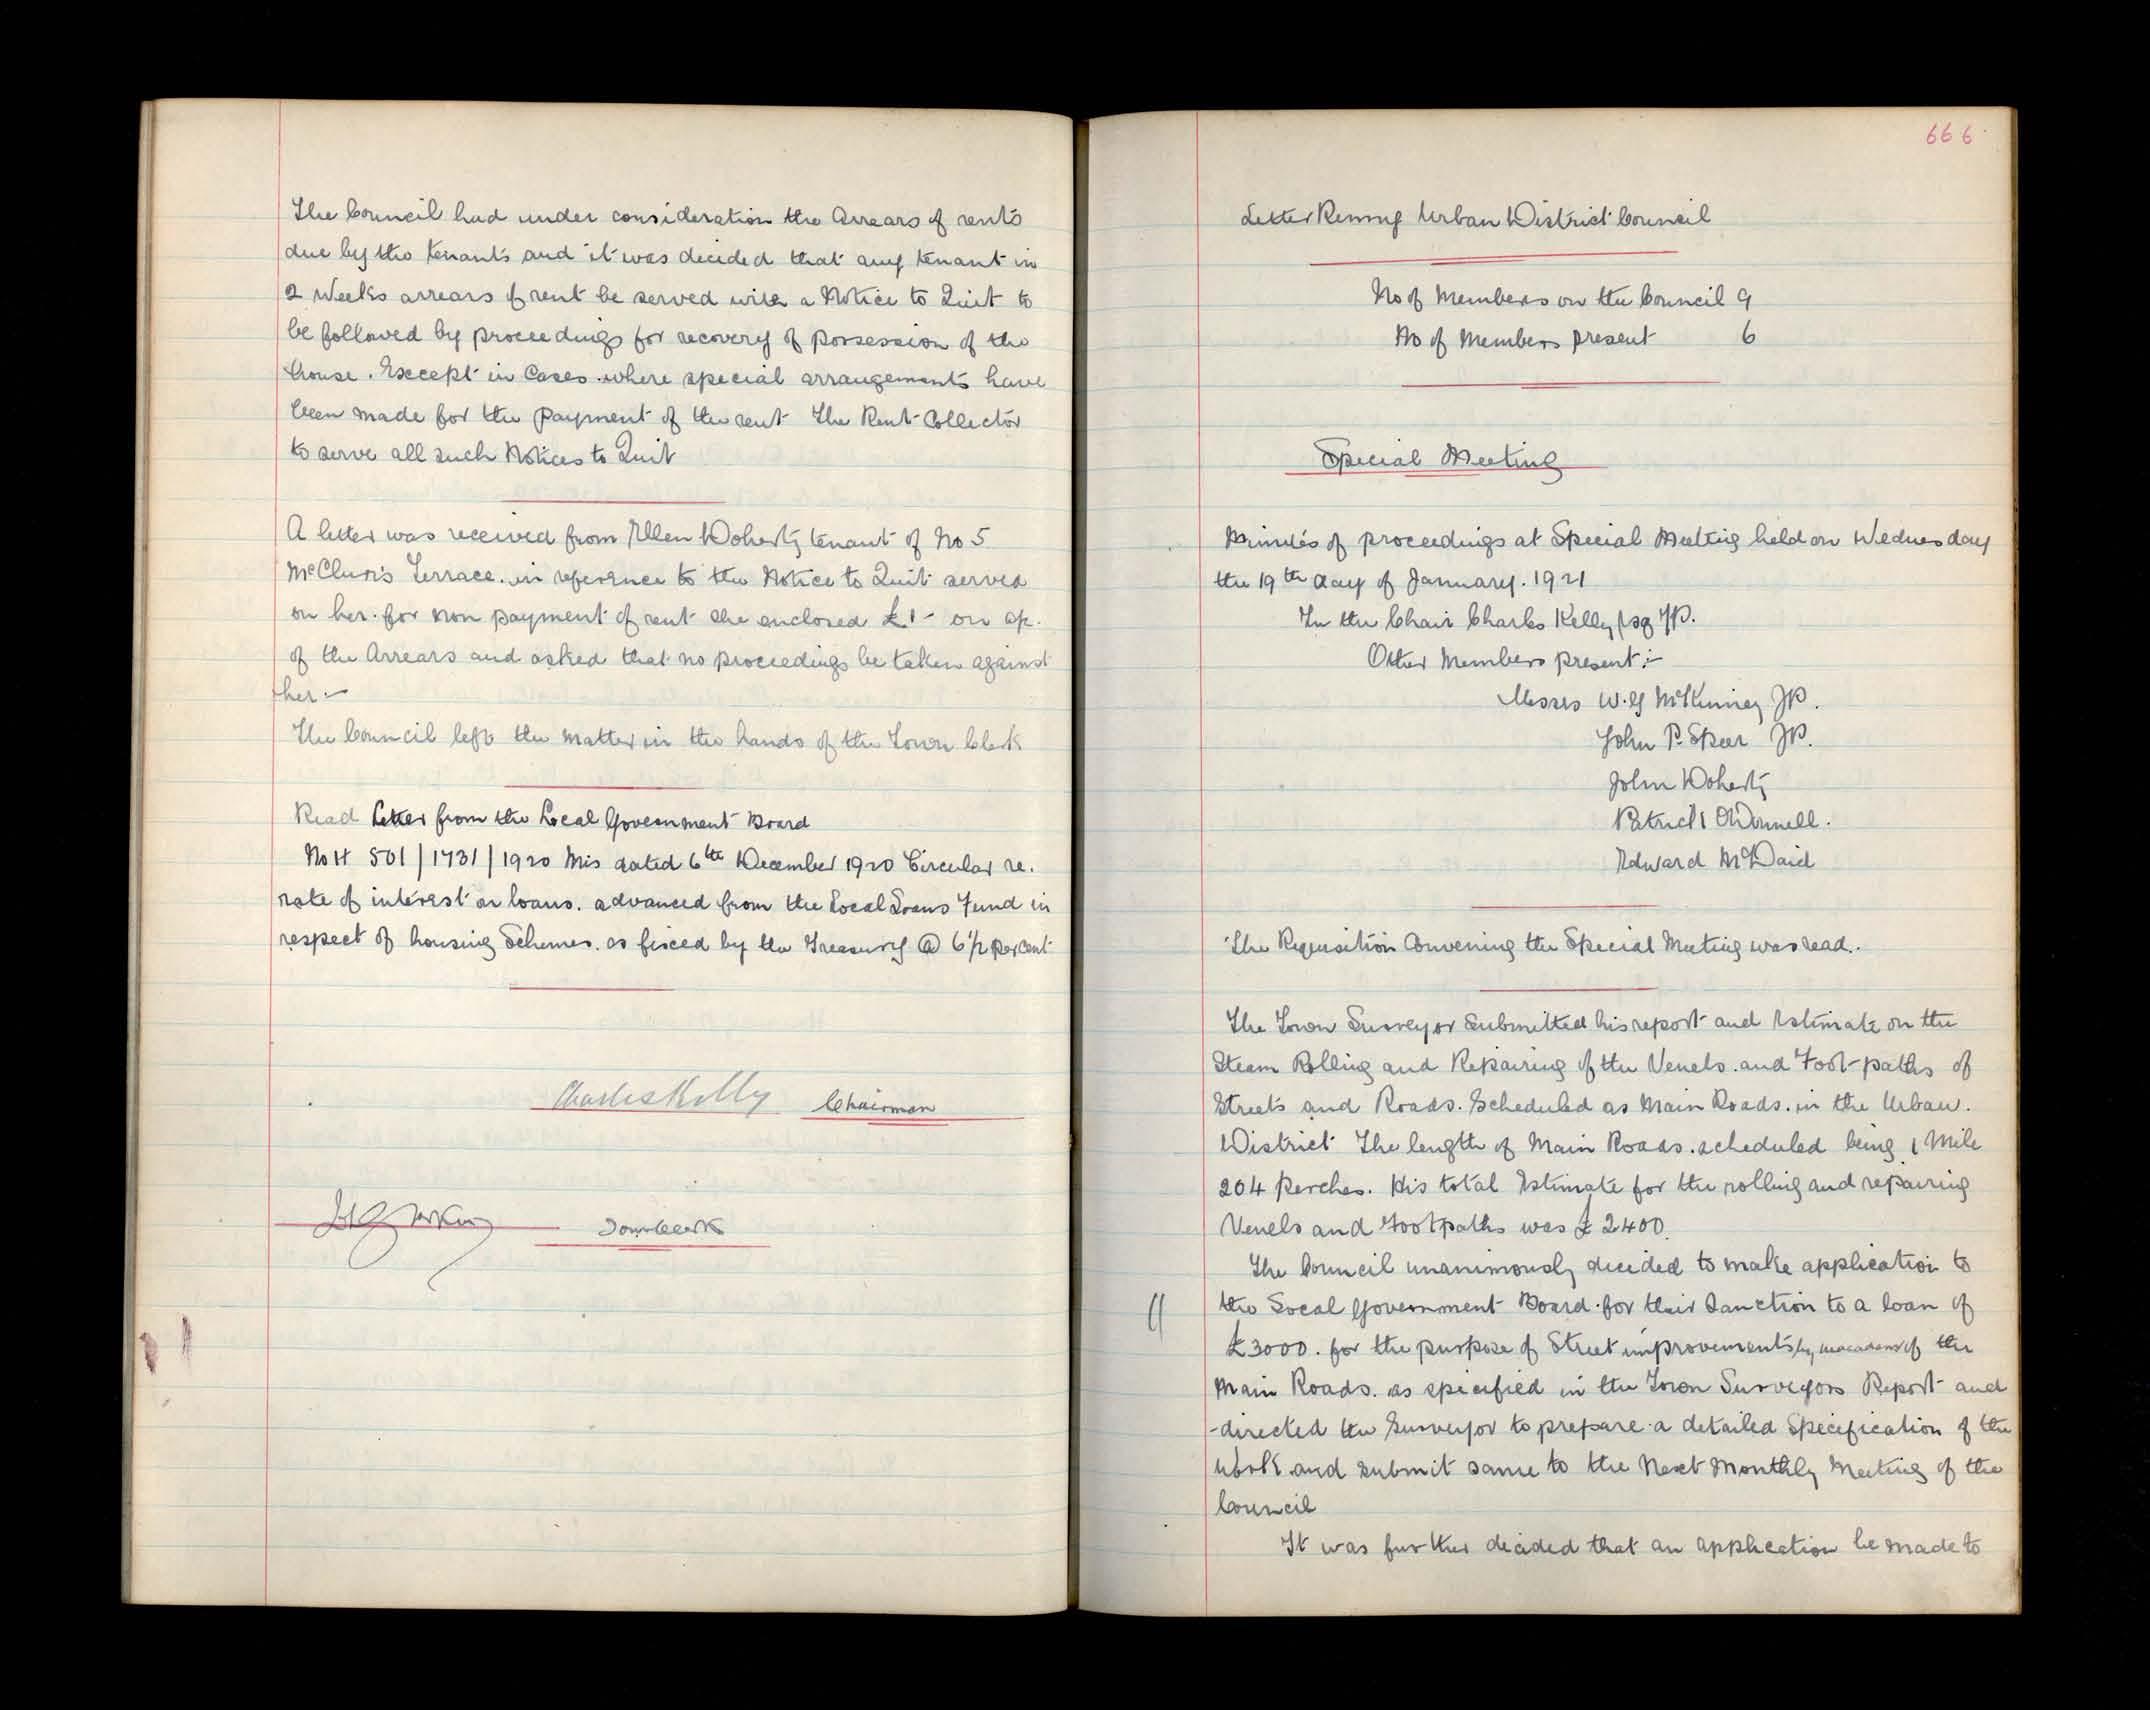 The Council had under consideration the Arrears of rents
due by the tenants and it was decided that any tenant in
2 Weeks arrears of rent be served with a Notice to Quit to
be followed by proceedings for recovery of possession of the
house. Except in Cases where special arrangements have
been made for the payment of the rent The Rent Collector
to serve all such Notices to Quit
A letter was received from Ellen Doherty tenant of No 5
McClure's Terrace. in reference to the Notice to Quit served
on her. for non payment of rent she enclosed £1 - on a/c.
of the Arrears and asked that no proceedings be taken against
her :-
The Council left the matter in the hands of the Town Clerk
Read Letter from the Local Government Board
No H 501/1731/1920 Mis dated 6th December 1920 Circular re.
rate of interest on loans. advanced from the Local Loans Fund in
respect of housing Schemes. as fixed by the Treasury @ 6½ per cent
Charles Kelly Chairman
Town Clerk
666
LetterKenny Urban District Council
No of Members on the Council 9
No of Members present 6
Special Meeting
Minutes of proceedings at Special Meeting held on Wednesday
the 19th day of January. 1921
In the Chair Charles Kelly Esq JP.
Other Members present :-
Messrs W. G McKinney JP.
John P. Speer JP.
John Doherty
Patrick O'Donnell.
Edward McDaid
The Requisition Convening the Special Meeting was read.
The Town Surveyor Submitted his report and Estimate on the
Steam Rolling and Repairing of the Venels. and Foot-paths of
Streets and Roads. Scheduled as Main Roads. in the Urban.
District The length of Main Roads. scheduled being 1 Mile
204 Perches. His total Estimate for the rolling and repairing
Venels and Footpaths was £2400.
The Council unanimously decided to make application to
the Local Government Board. for their Sanction to a loan of
£3000. for the purpose of Street improvements by macadam of the
Main Roads. as specified in the Town Surveyors Report and
-directed the Surveyor to prepare a detailed Specification of the
Work. and submit same to the Next Monthly Meeting of the
Council
It was further decided that an application be made to